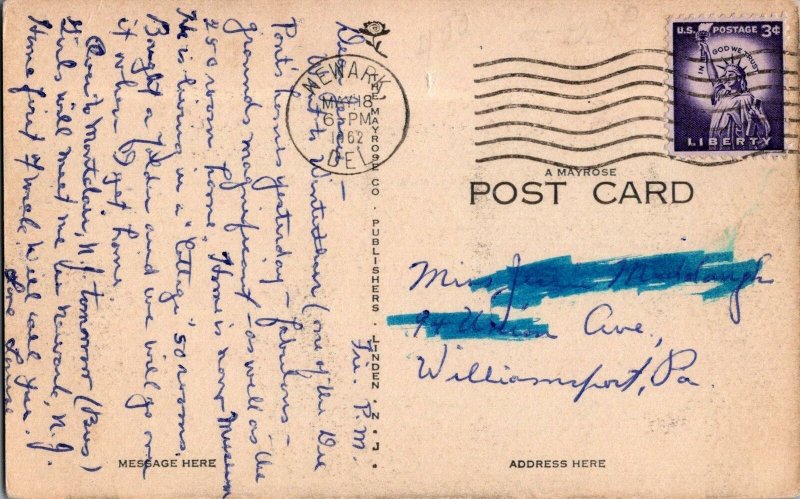 Fri. P.M.
Dear
to Winterthur (one of the Du
Pont's homes yesterday - fabulous -
grounds magnificent - as well as the
250 room home. Home is now Museum
He is living in a "Cottage" 50 rooms.
Bought a folder and we will go over
it when I get home.
Over to Montclair, N.J. tomorrow (Bus)
Girls will meet me in Newark, N.J.
Home first of week. Will call you.
Love
MESSAGE HERE
THE MAYROSE CO. PUBLISHERS. LINDEN. N. J.
NEWARK
MAY 18
6 PM
1962
DEL.
U.S. POSTAGE 3¢
IN GOD WE TRUST
LIBERTY
A MAYROSE
POST CARD
Miss Middaugh
Ave,
Williamsport, Pa.
ADDRESS HERE